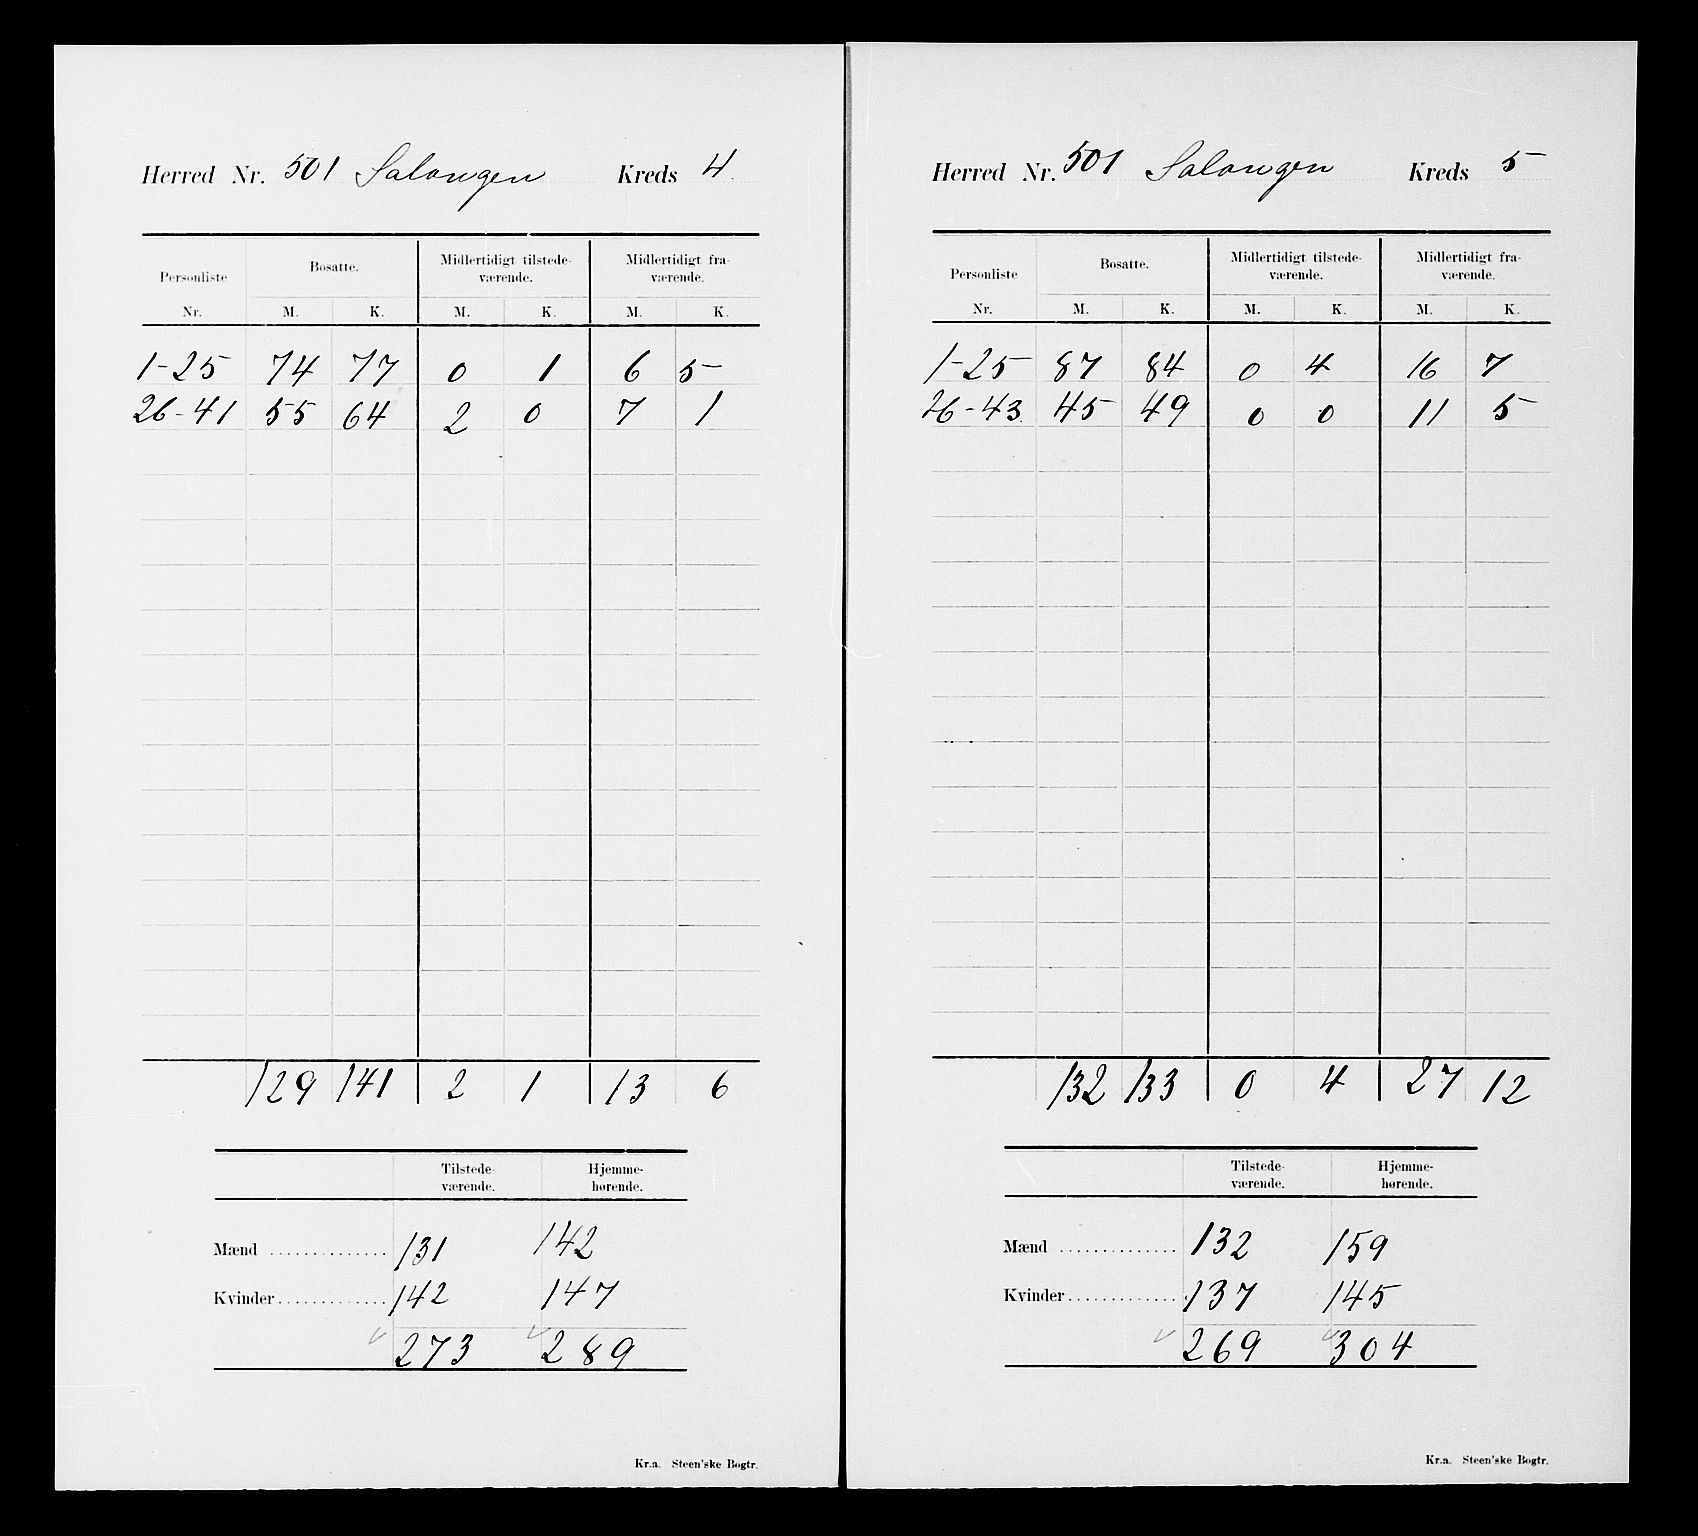 Herred Nr. 501 Salangen Kreds 4.
Personliste Bosatte. Midlertidigt tilstede- Midlertidigt fra-
værende. værende.
Nr. M. K. M. K. M. K.
1-25 74 77 0 1 6 5
26-41 55 64 2 0 7 1
129 141 2 1 13 6
Tilstede- Hjemme-
værende. hørende.
Mænd .............. 131 142
Kvinder............. 142 147
273 289
Kr.a. Steen'ske Bogtr.
Herred Nr. 501 Salangen Kreds 5
Personliste Bosatte. Midlertidigt tilstede- Midlertidigt fra-
værende. værende.
Nr. M. K. M. K. M. K.
1-25 87 84 0 4 16 7
26-43 45 49 0 0 11 5
132 133 0 4 27 12
Tilstede- Hjemme-
værende. hørende.
Mænd .............. 132 159
Kvinder............. 137 145
269 304
Kr.a. Steen'ske Bogtr.